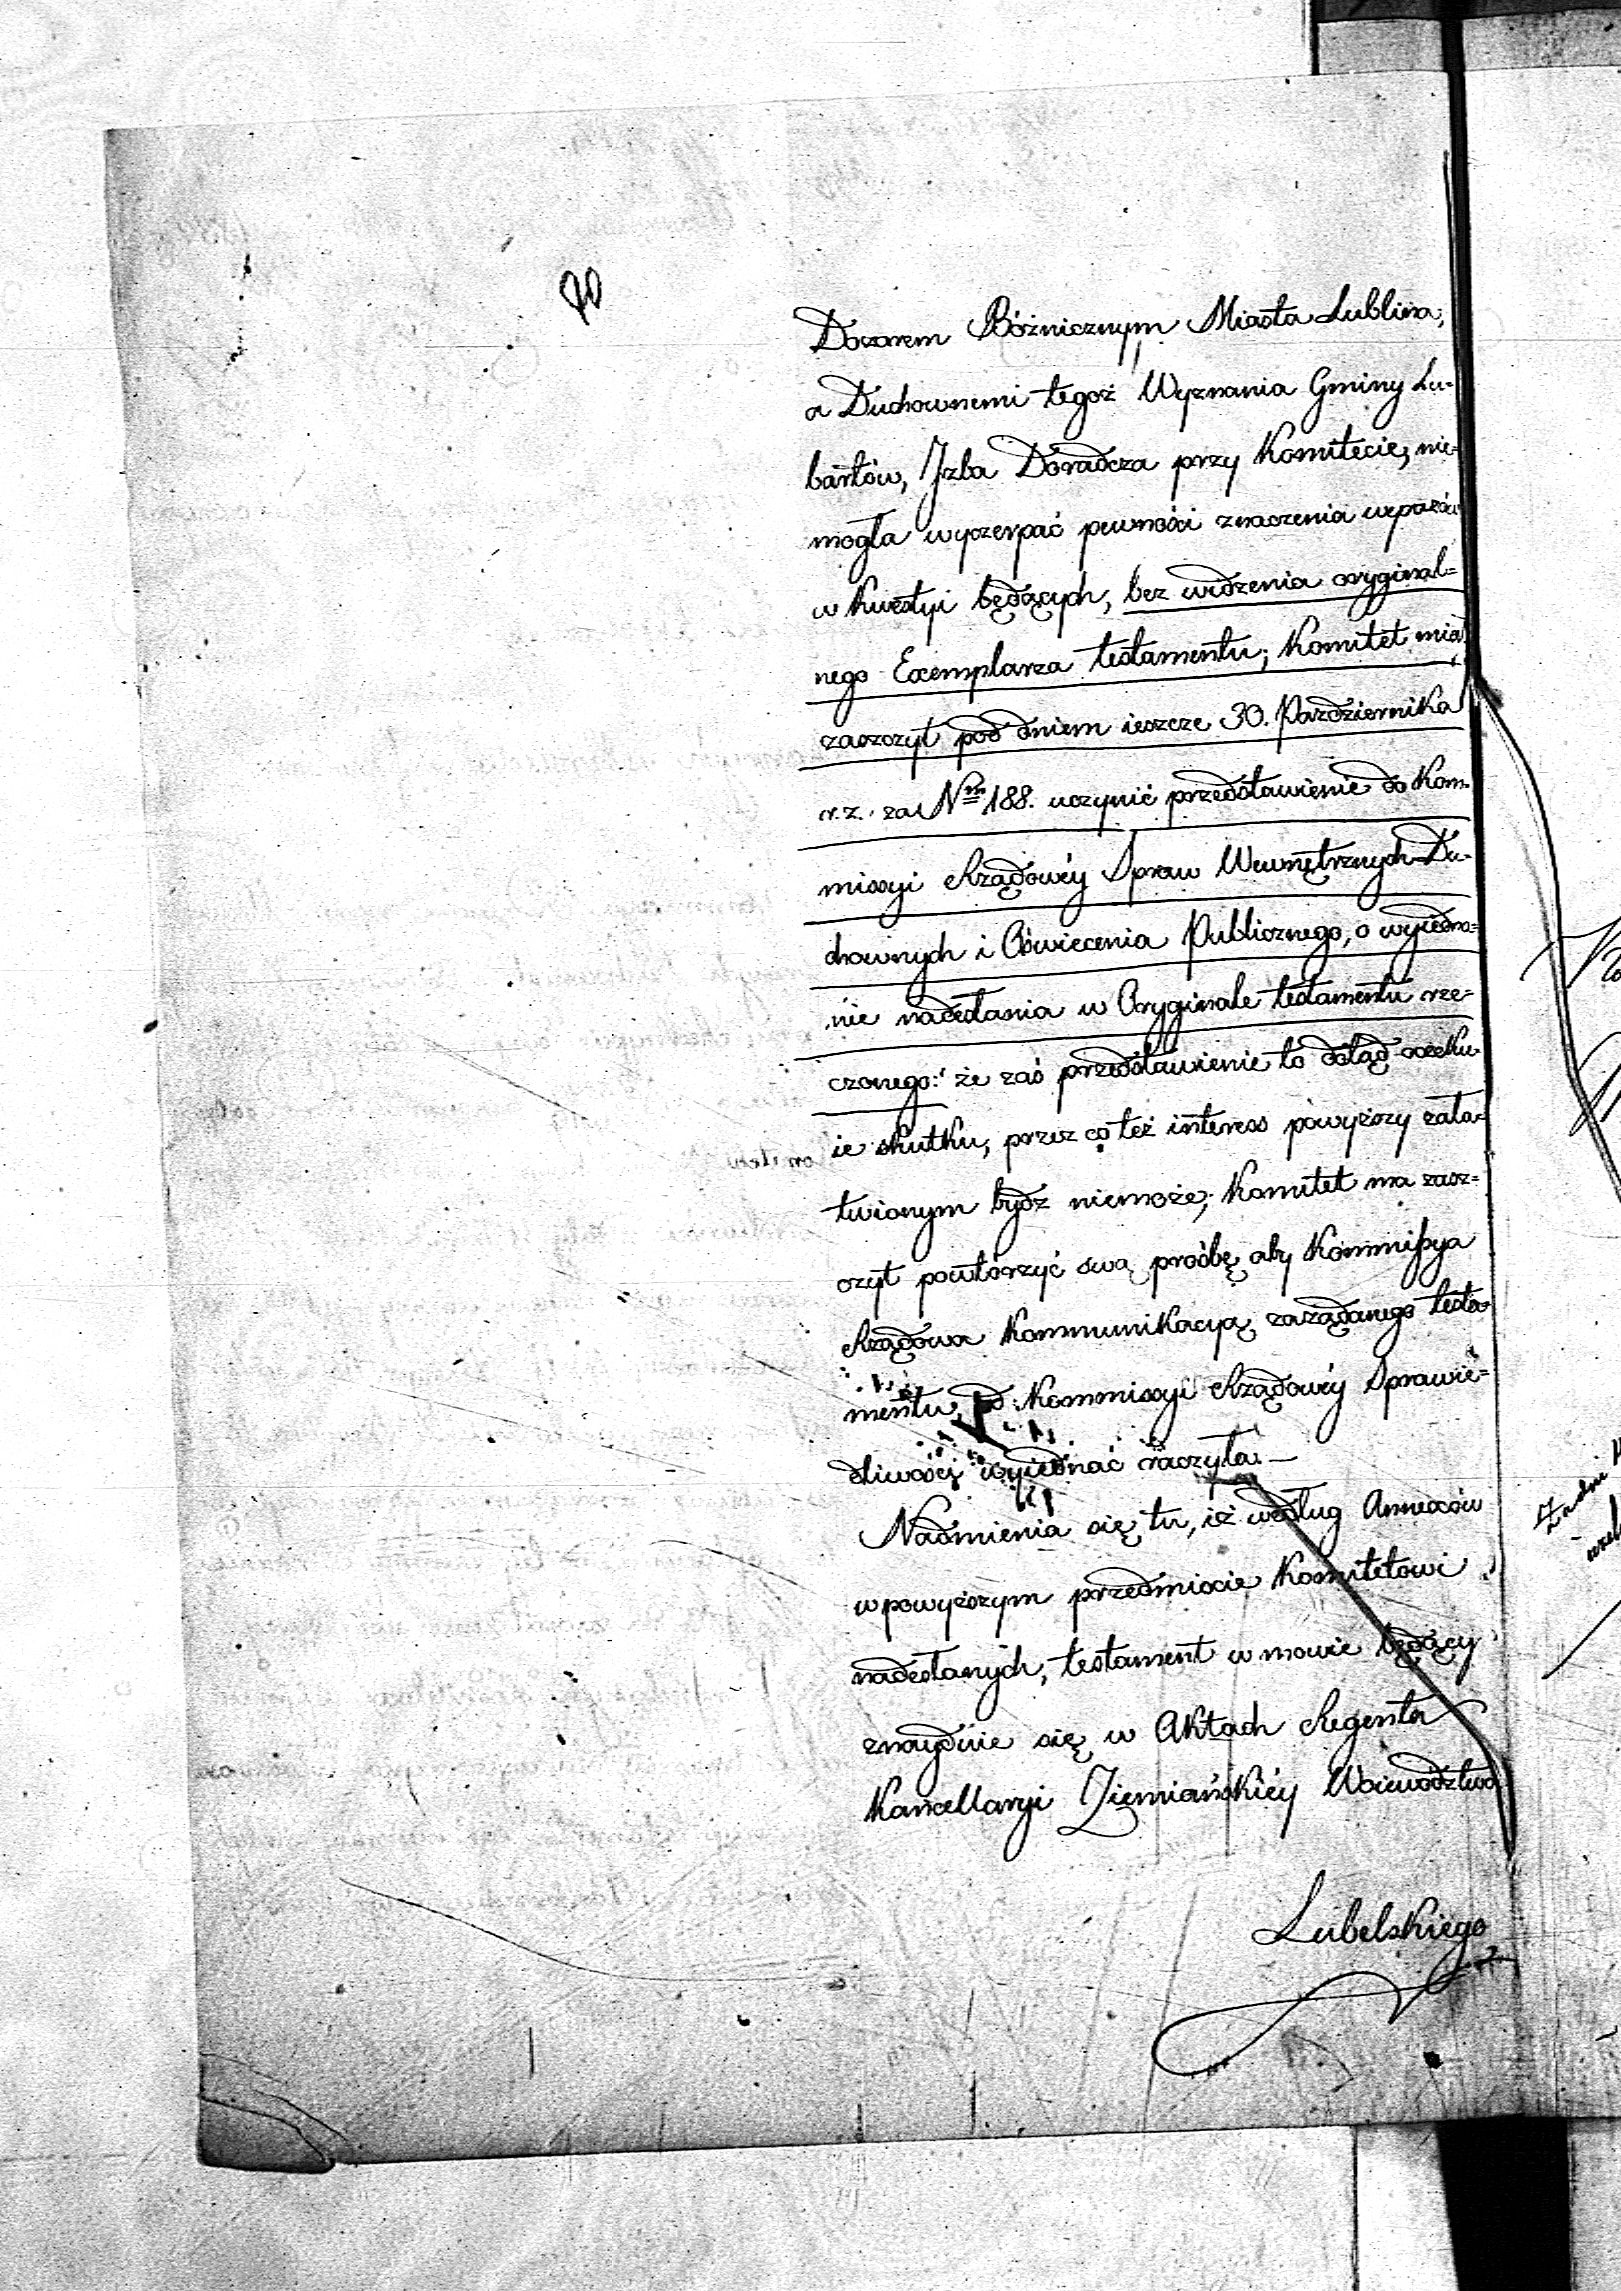 Dozorem Bóżnicznym Miasta Lublina,
a Duchownemi tegoż Wyznania Gminy Lu-
bartów, Jzba Doradcza przy Komitecie, nie-
mogła wyczerpać pewności znaczenia wyrazów
w kwestyi będących, bez widzenia oryginal=
nego Exemplarza testamentu; Komitet miał
zaszczyt pod dniem ieszcze 30. Października
r. z. za Nrm 188. uczynić przedstawienie do Kom-
missyi Rządowéy Spraw Wewnętrznych Du-
chownych i Oświecenia Publicznego, o wyiedna=
nie nadesłania w Oryginale testamentu rze=
czonego: że zaś przedstawienie to dotąd oczeku-
ie skutku, przez co też interess powyższy zała-
twionym bydź niemoże; Komitet ma zasz=
czyt powtórzyć swą prośbę aby Kommissya
Rządowa Kommunikacyą zażądanego testa-
mentu, od Kommissyi Rządowéy Sprawie=
dliwości wyiednać raczyła. —
Nadmienia się tu, iż według Annexów
w powyższym przedmiocie Komitetowi
nadesłanych, testament w mowie będący
znayduie się w Aktach Regenta
Kancellaryi Ziemiańskiéy Woiewództwa
Lubelskiego